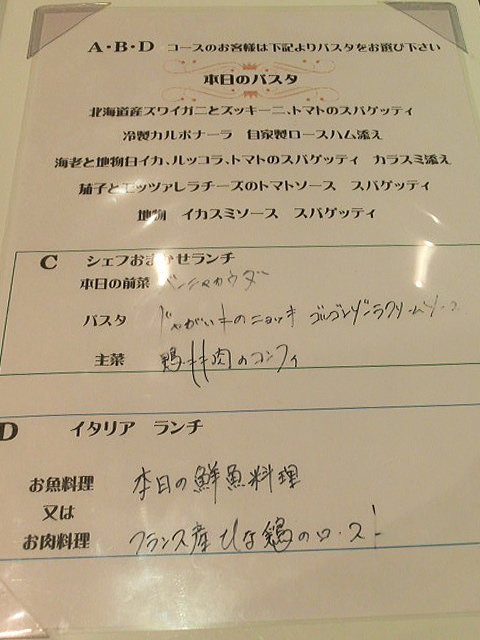 A・B・D コースのお客様は下記よりパスタをお選び下さい
本日のパスタ
北海道産ズワイガニとズッキーニ、トマトのスパゲッティ
冷製カルボナーラ 自家製ロースハム添え
海老と地物白イカ、ルッコラ、トマトのスパゲッティ カラスミ添え
茄子とモッツァレラチーズのトマトソース スパゲッティ
地物 イカスミソース スパゲッティ
C シェフおまかせランチ
本日の前菜 バーニャカウダ
パスタ じゃがいものニョッキ ゴルゴンゾーラクリームソース
主菜 鶏もも肉のコンフィ
D イタリア ランチ
お魚料理 本日の鮮魚料理
又は
お肉料理 フランス産ひな鶏のロースト